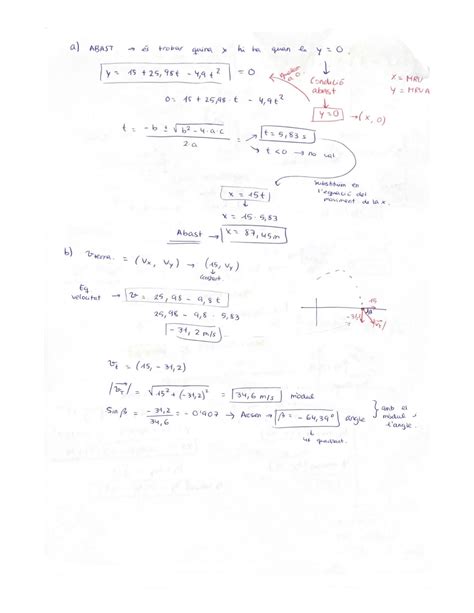 a) ABAST → és trobar quina x hi ha quan la y = 0.
y = 15 + 25,98t - 4,9t² = 0
igualem a 0.
Condició abast
x = MRU
y = MRVA
0 = 15 + 25,98 · t - 4,9t²
y=0 → (x, 0)
t = -b ± √b² - 4·a·c / 2·a = t = 5,83 s
t < 0 → no val
substituïm en l'equació del moviment de la x.
x = 15t
x = 15 · 5,83
Abast → x = 87,45m
b) = (Vx, Vy) → (15, Vy)
constant.
Eq velocitat → v = 25,98 - 9,8t
25,98 - 9,8 · 5,83
-31,2 m/s
15
-31,2
vt = (15, -31,2)
|vt| = √15² + (-31,2)² = 34,6 m/s mòdul
Sin β = -31,2 / 34,6 = -0'907 → Arcsin → β = -64,39° angle
4t quadrant.
amb el mòdul i l'angle.